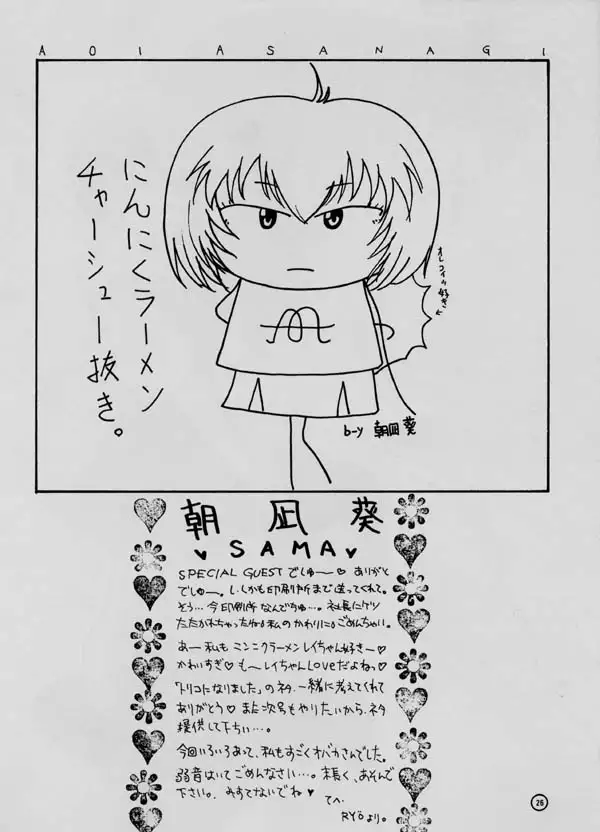 AOI ASANAGI
にんにくラーメン
チャーシュー抜き。
オレコイツ好き
b-y 朝凪 葵
朝凪葵
♥ SAMA ♥
SPECIAL GUESTでしゅ〜♡ ありがと
でしゅ〜。しかも印刷所まで送ってくれて。
そう…今印刷所なんでちゅ…。社長にケツ
たたかれちゃったね♡私のかわりに♡ごめんちゃい。
あー私もニンニクラーメンレイちゃん好きー♡
かわいすぎ♡も〜レイちゃんLoveだよねっ♡
「トリコになりました」のネタ一緒に考えてくれて
ありがとう♡また次号もやりたいから、ネタ
提供して下ちい…。
今回いろいろあって、私もすごくオバカさんでした。
弱音はいてごめんなさい…。末長く、あそんで
下さい。みすてないでね♥
てへ。
RYöより。
26